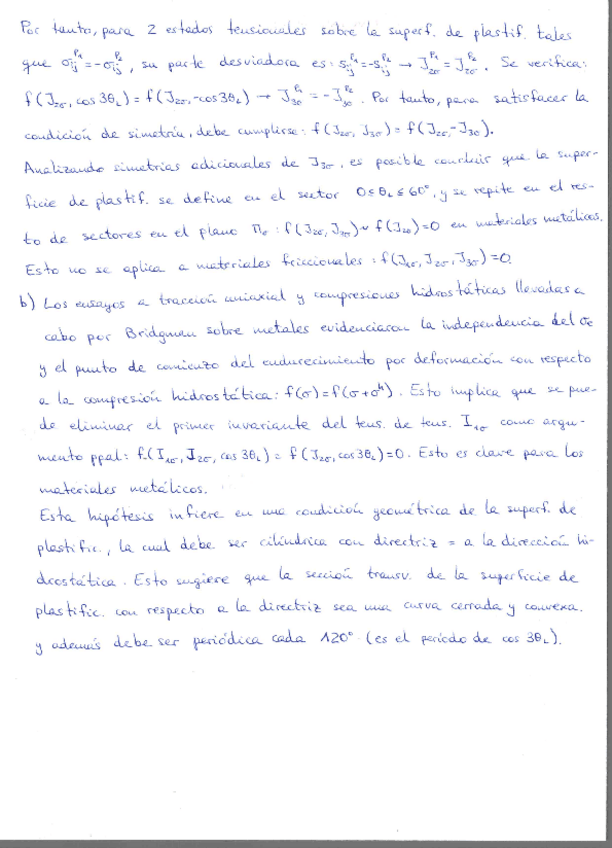 Por tanto, para 2 estados tensionales sobre la superf. de plastif. tales
que σij^P1 = -σij^P2, su parte desviadora es: sij^P1 = -sij^P2 → J2σ^P1 = J2σ^P2. Se verifica:
f(J2σ, cos3θL) = f(J2σ, -cos3θL) → J3σ^P1 = -J3σ^P2. Por tanto, para satisfacer la
condición de simetría, debe cumplirse: f(J2σ, J3σ) = f(J2σ, -J3σ).
Analizando simetrías adicionales de J3σ, es posible concluir que la super-
ficie de plastif. se define en el sector 0≤θL≤60°, y se repite en el res-
to de sectores en el plano Πσ: f(J2σ, J3σ) ~ f(J2σ)=0 en materiales metálicos.
Esto no se aplica a materiales friccionales: f(I1σ, J2σ, J3σ)=0.
b) Los ensayos a tracción uniaxial y compresiones hidrostáticas llevadas a
cabo por Bridgman sobre metales evidenciaron la independencia del σe
y el punto de comienzo del endurecimiento por deformación con respecto
a la compresión hidrostática: f(σ)=f(σ+σ^h). Esto implica que se pue-
de eliminar el primer invariante del tens. de tens. I1σ como argu-
mento ppal: f(I1σ, J2σ, cos 3θL) = f(J2σ, cos3θL)=0. Esto es clave para los
materiales metálicos.
Esta hipótesis infiere en una condición geométrica de la superf. de
plastific., la cual debe ser cilíndrica con directriz = a la dirección hi-
drostática. Esto sugiere que la sección transv. de la superficie de
plastific. con respecto a la directriz sea una curva cerrada y convexa.
y además debe ser periódica cada 120° (es el período de cos 3θL).